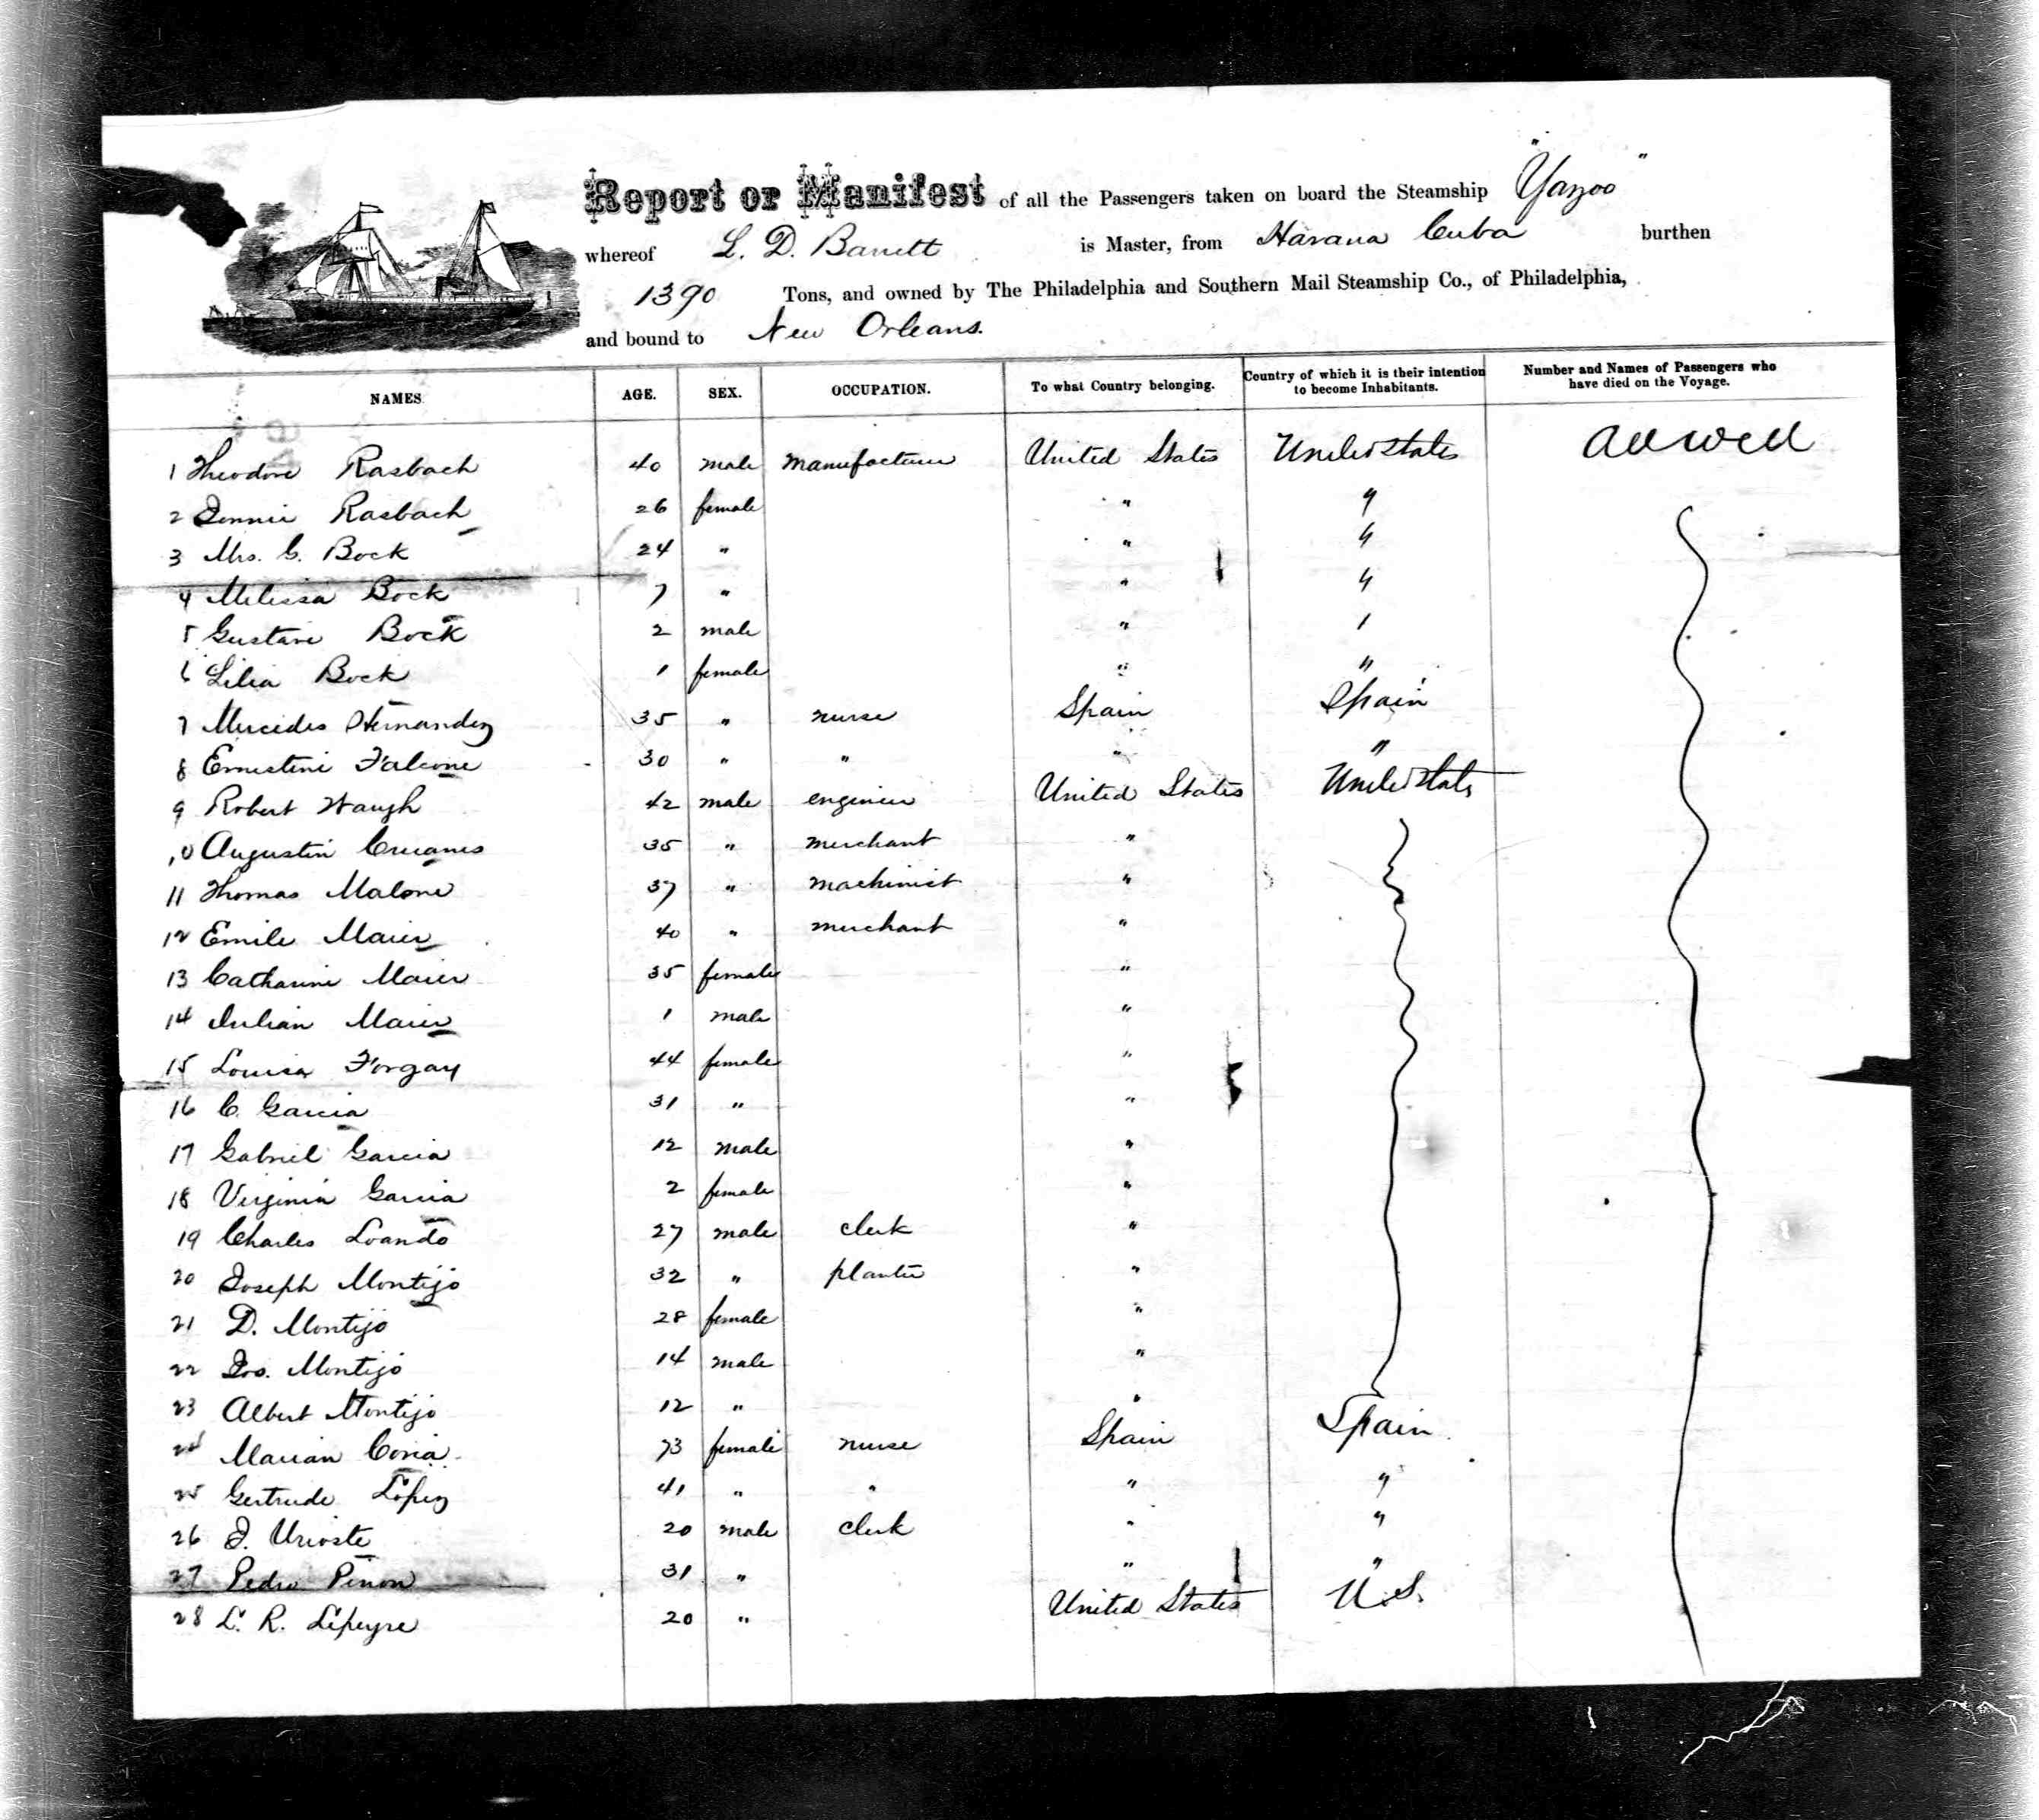 Report or Manifest of all the Passengers taken on board the Steamship "Yazoo"
whereof L. D. Barrett is Master, from Havana Cuba burthen
1390 Tons, and owned by The Philadelphia and Southern Mail Steamship Co., of Philadelphia,
and bound to New Orleans.
NAMES. AGE. SEX. OCCUPATION. To what Country belonging. Country of which it is their intention to become Inhabitants. Number and Names of Passengers who have died on the Voyage.
1 Theodore Rasbach 40 male manufacturer United States United States All well
2 Jennie Rasbach 26 female " "
3 Mrs. C. Bock 24 " " "
4 Melissa Bock 7 " " "
5 Gustave Bock 2 male " "
6 Lilia Bock 1 female " "
7 Mercedes Hernandez 35 " nurse Spain Spain
8 Ernestine Falcone 30 " " " "
9 Robert Waugh 42 male engineer United States United States
10 Augustin 35 " merchant "
11 Thomas Malone 37 " machinist "
12 Emile Maier 40 " merchant "
13 Catharine Maier 35 female "
14 Julian Maier 1 male "
15 Louisa Forgay 44 female "
16 C. Garcia 31 " "
17 Gabriel Garcia 12 male "
18 Virginia Garcia 2 female "
19 Charles Loando 27 male clerk "
20 Joseph Montijo 32 " planter "
21 D. Montijo 28 female "
22 Jos. Montijo 14 male "
23 Albert Montijo 12 " "
24 Marian Coria 73 female nurse Spain Spain
25 Gertrude Lopez 41 " " " "
26 J. Urioste 20 male clerk " "
27 Pedro Pinon 31 " " "
28 L. R. Lepeyre 20 " United States U.S.